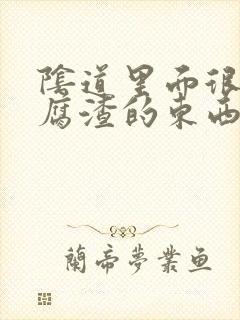 陰道里面很
腐渣的東西
蘭帝夢業鱼